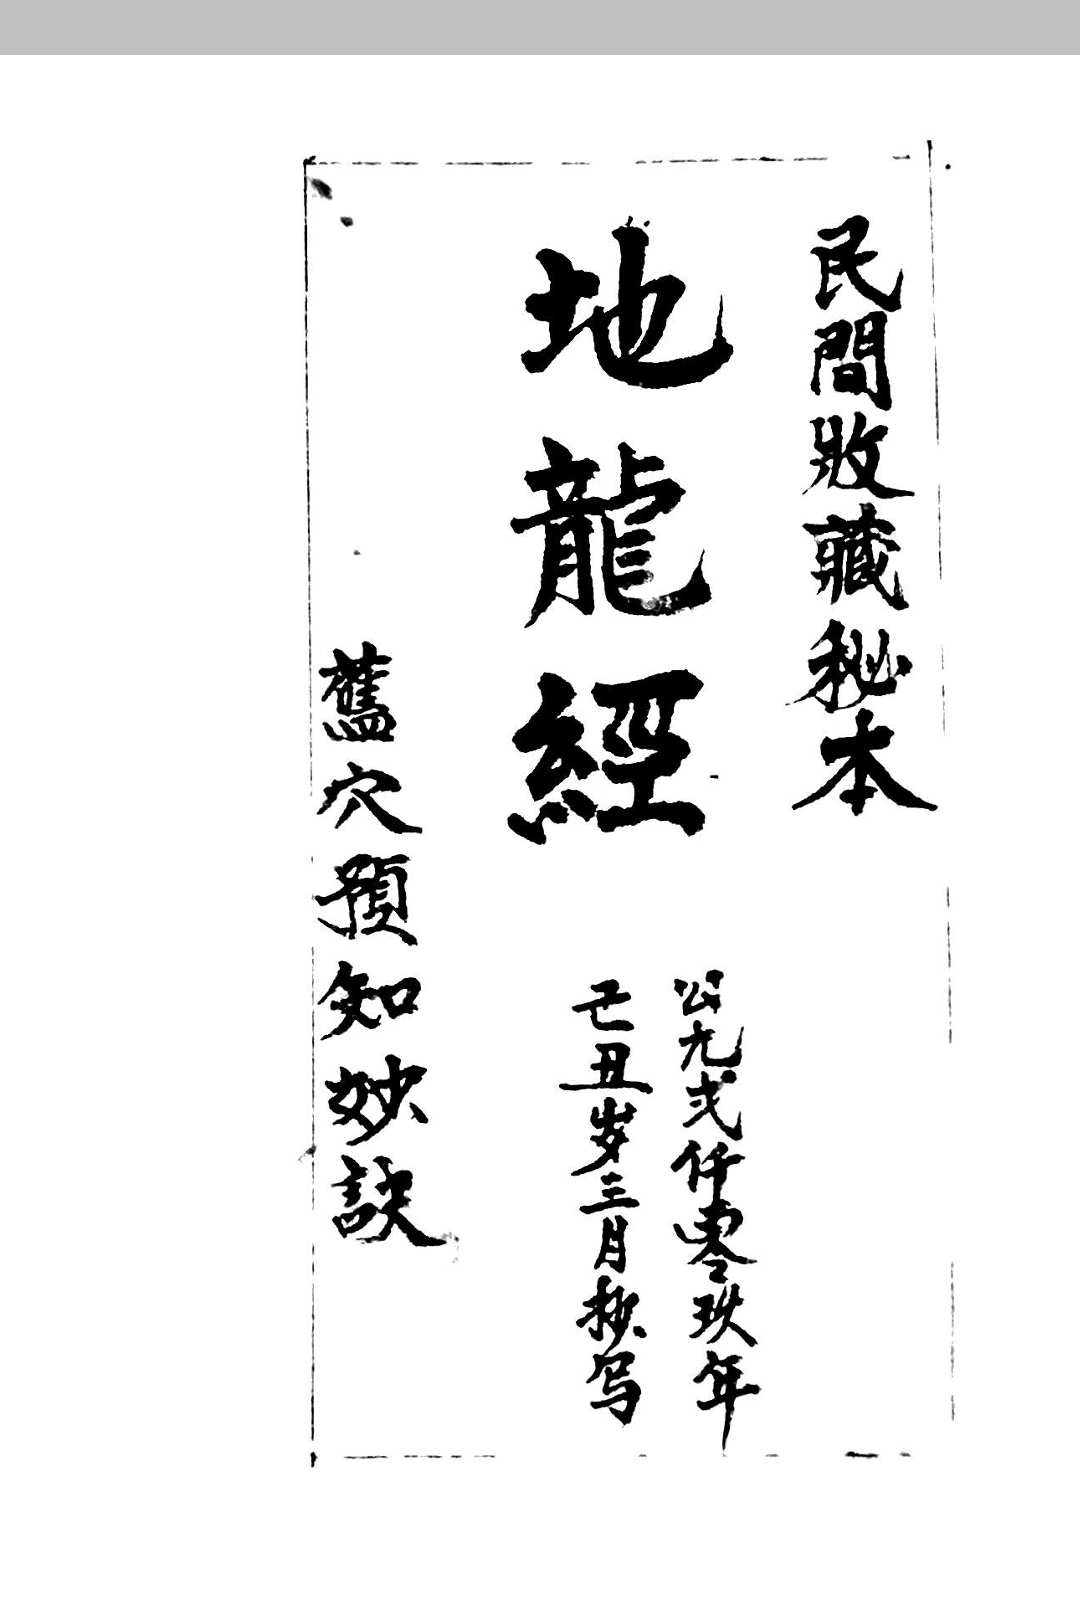 民間收藏秘本
地龍經
公元弍仟零玖年
己丑岁三月抄写
舊穴預知妙訣